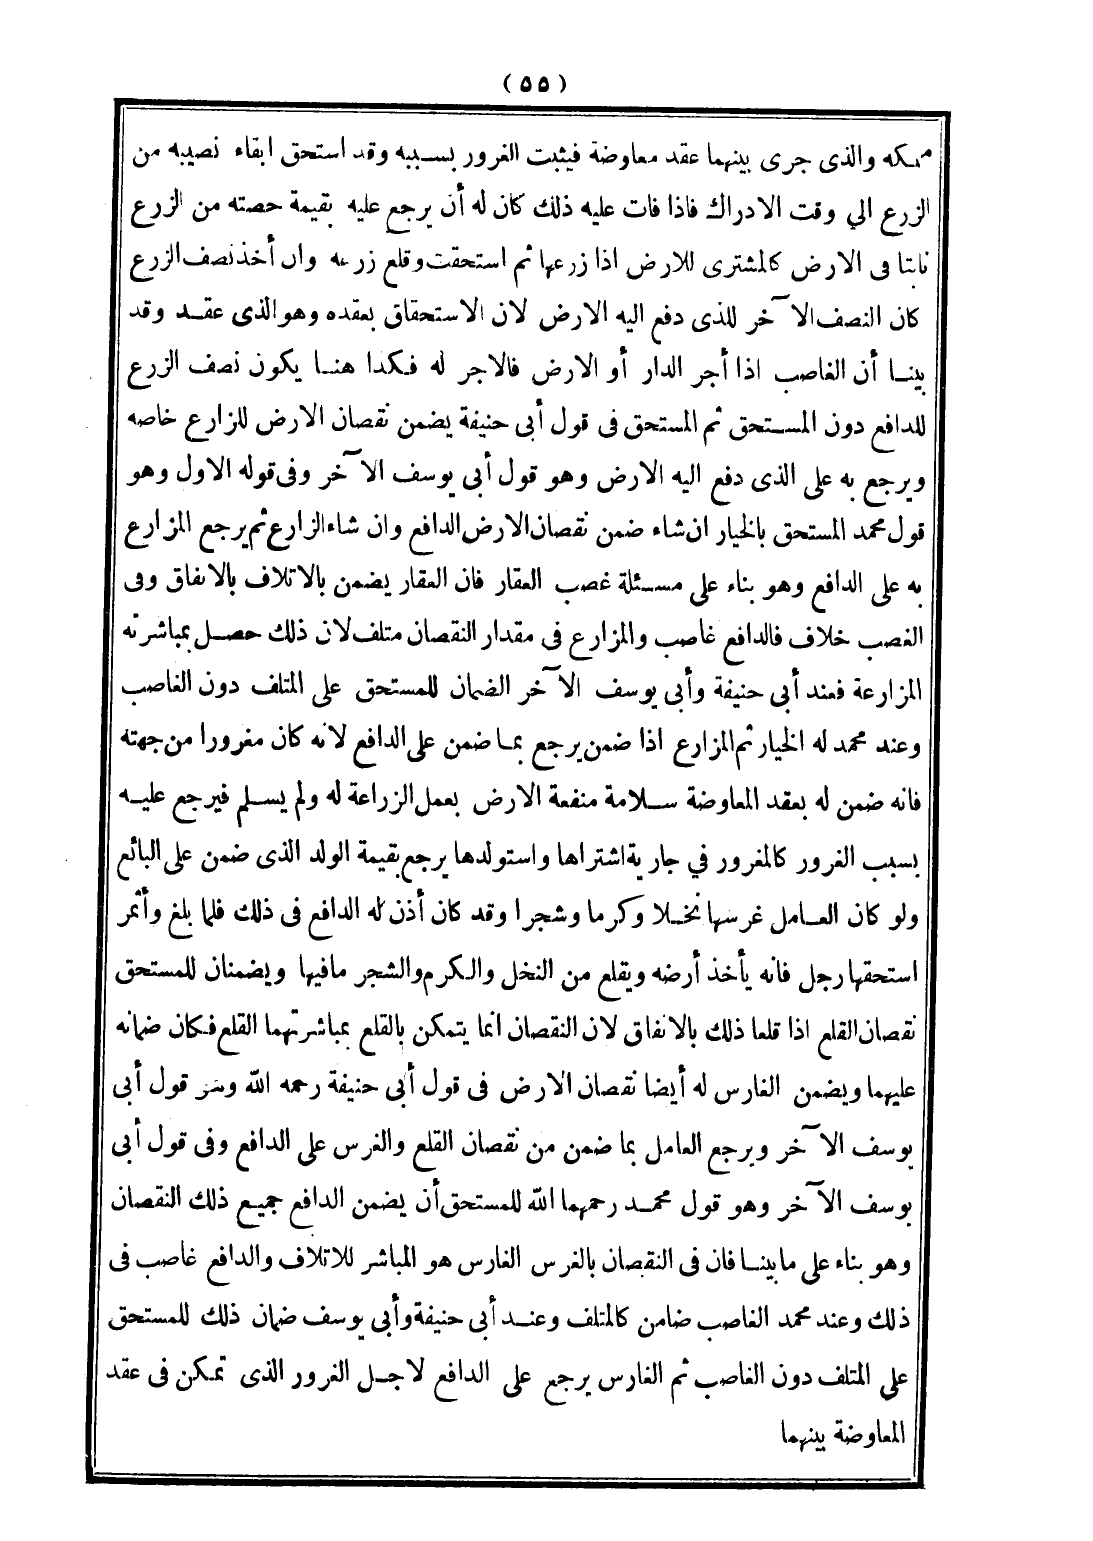 ( ٥٥ )
والذى جرى بينهما عقد معاوضة فيثبت الغرور بسببه وقد استحق ابقاء نصيبه من
الزرع الي وقت الادراك فاذا فات عليه ذلك كان له أن يرجع عليه بقيمة حصته من الزرع
نابتا فى الارض كالمشترى للارض اذا زرعها ثم استحقت وقلع زرعه وان أخذ نصف الزرع
كان النصف الآخر للذى دفع اليه الارض لان الاستحقاق بعقده وهو الذى عقد وقد
بينا أن الغاصب اذا أجر الدار أو الارض فالاجر له فكذا هنا يكون نصف الزرع
للدافع دون المستحق ثم المستحق فى قول أبى حنيفة يضمن نقصان الارض للزارع خاصه
ويرجع به على الذى دفع اليه الارض وهو قول أبي يوسف الآخر وفى قوله الاول وهو
قول محمد المستحق بالخيار ان شاء ضمن نقصان الارض الدافع وان شاء الزارع ثم يرجع المزارع
به على الدافع وهو بناء على مسئلة غصب العقار فان العقار يضمن بالاتلاف بالاتفاق وفى
الغصب خلاف فالدافع غاصب والمزارع فى مقدار النقصان متلف لان ذلك حصل بمباشرته
المزارعة فعند أبى حنيفة وأبى يوسف الآخر الضمان للمستحق على المتلف دون الغاصب
وعند محمد له الخيار ثم المزارع اذا ضمن يرجع بما ضمن على الدافع لانه كان مغرورا من جهته
فانه ضمن له بعقد المعاوضة سلامة منفعة الارض بعمل الزراعة له ولم يسلم فيرجع عليه
بسبب الغرور كالمغرور في جارية اشتراها واستولدها يرجع بقيمة الولد الذى ضمن على البائع
ولو كان العامل غرسها نخلا وكرما وشجرا وقد كان أذن له الدافع فى ذلك فلما بلغ وأثمر
استحقها رجل فانه يأخذ أرضه ويقلع من النخل والكرم والشجر مافيها ويضمنان للمستحق
نقصان القلع اذا قلعا ذلك بالاتفاق لان النقصان انما يتمكن بالقلع بمباشرتهما القلع فكان ضمانه
عليهما ويضمن الغارس له أيضا نقصان الارض فى قول أبى حنيفة رحمه الله وهو قول أبى
يوسف الآخر ويرجع العامل بما ضمن من نقصان القلع والغرس على الدافع وفى قول أبى
يوسف الآخر وهو قول محمد رحمهما الله للمستحق أن يضمن الدافع جميع ذلك النقصان
وهو بناء على ما بينا فان فى النقصان بالغرس الغارس هو المباشر للاتلاف والدافع غاصب فى
ذلك وعند محمد الغاصب ضامن كالمتلف وعند أبى حنيفة وأبى يوسف ضمان ذلك للمستحق
على المتلف دون الغاصب ثم الغارس يرجع على الدافع لاجل الغرور الذى تمكن فى عقد
المعاوضة بينهما